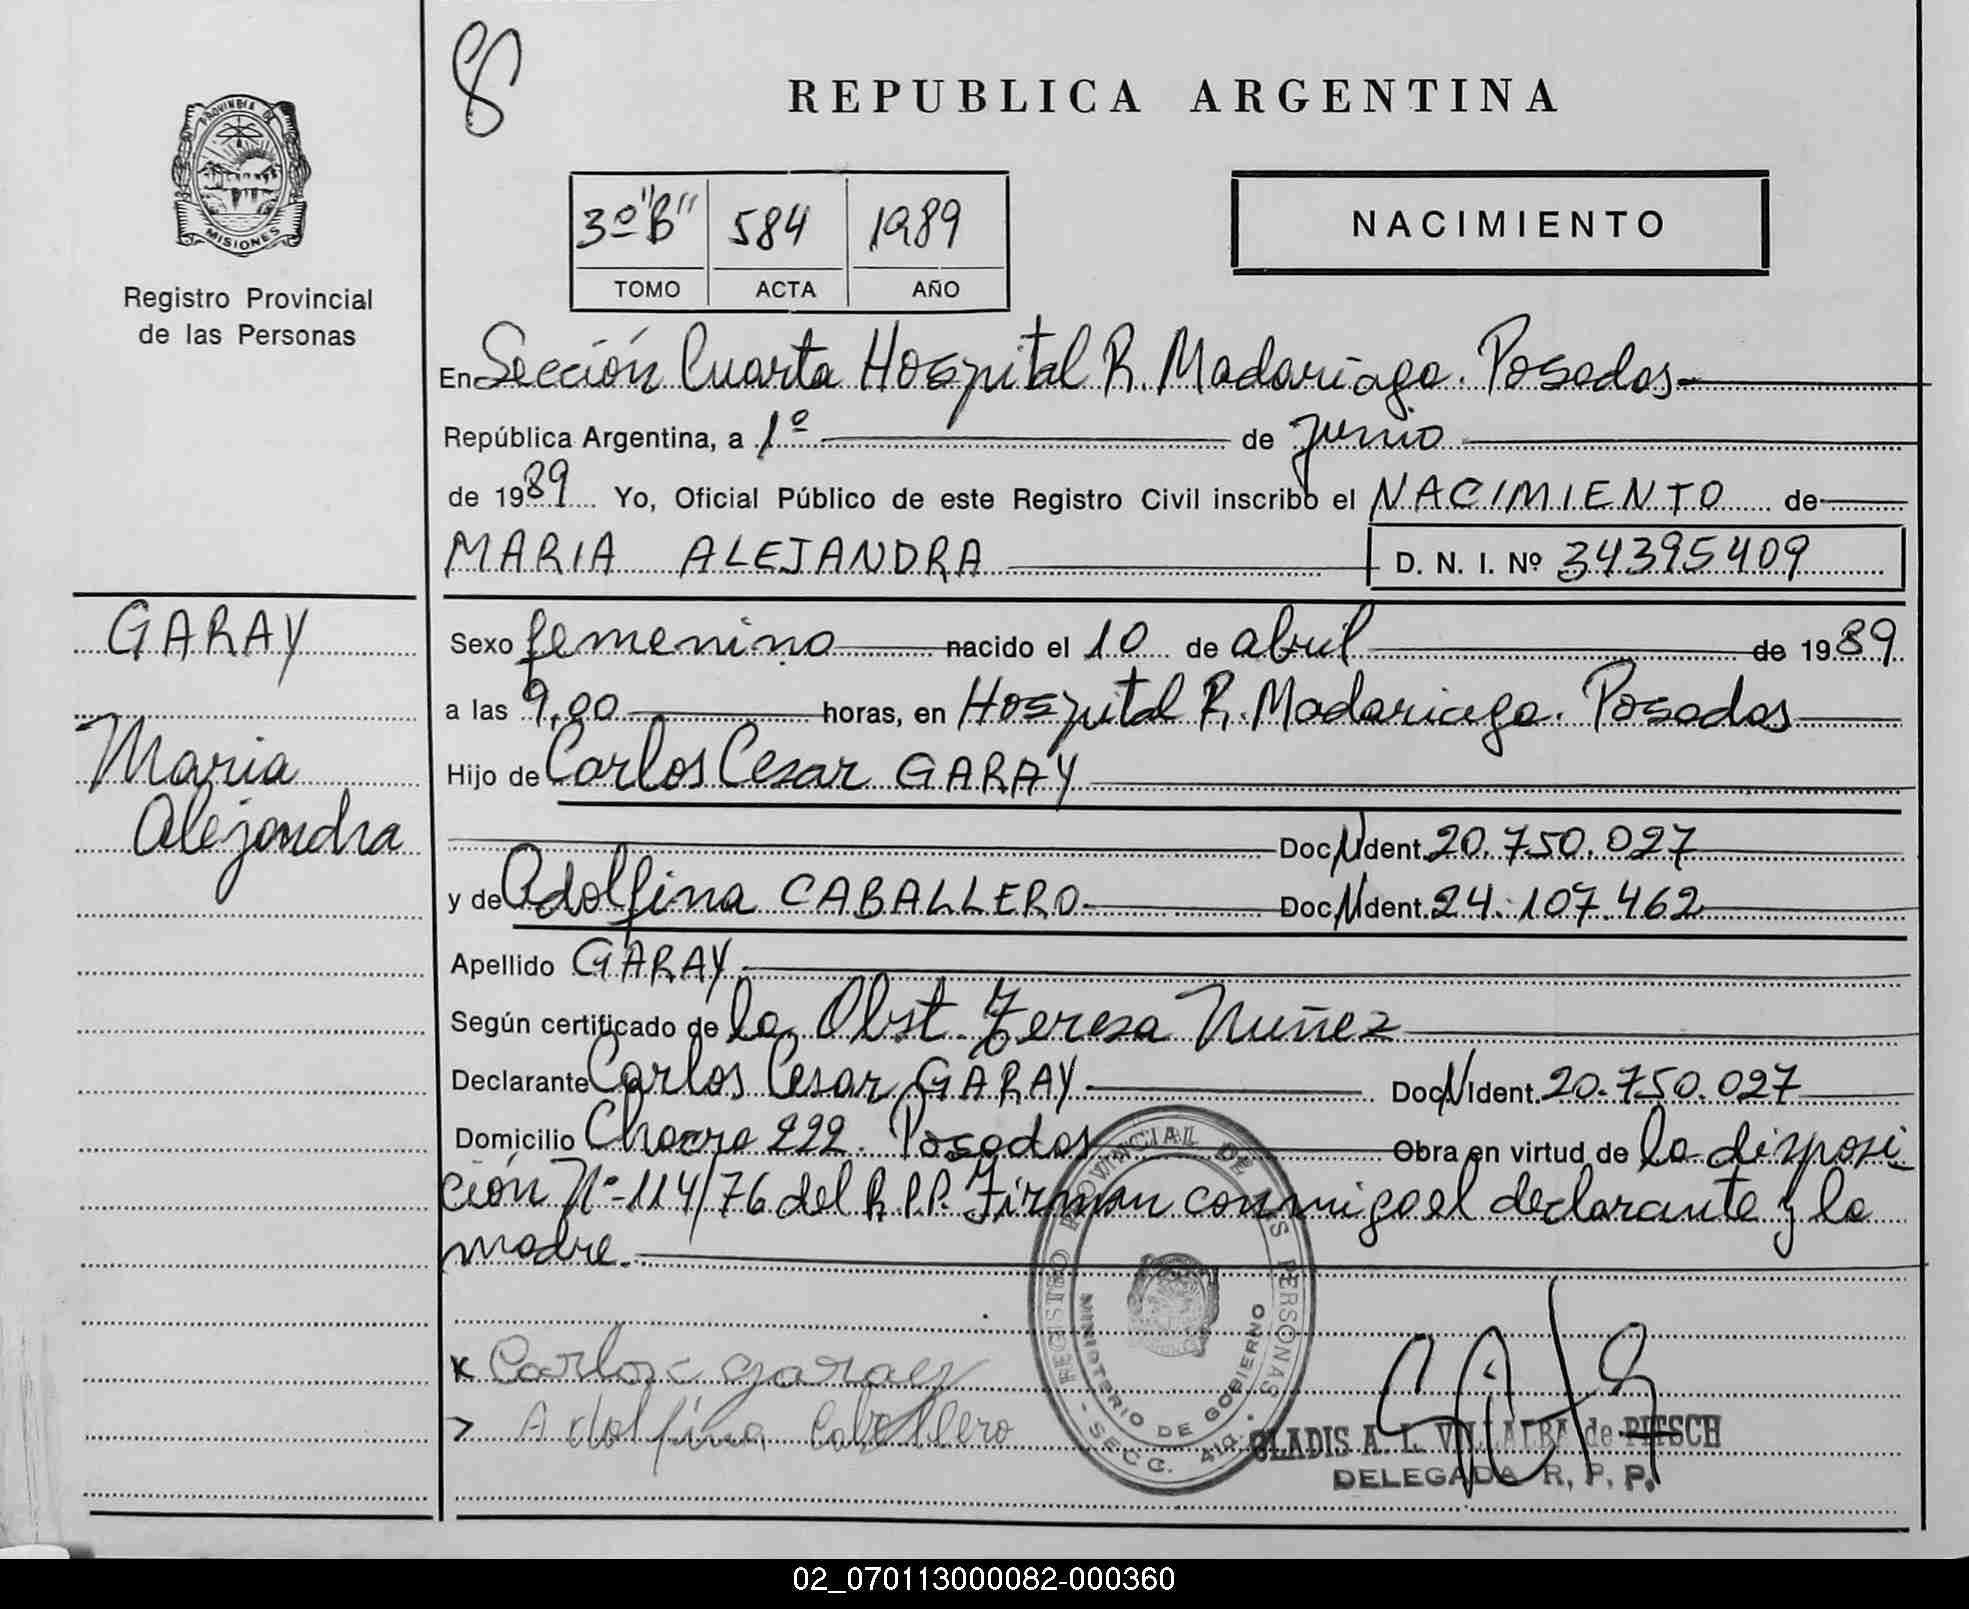 8
REPUBLICA ARGENTINA
PROVINCIA DE
MISIONES
Registro Provincial
de las Personas
3º"B" 584 1989
TOMO ACTA AÑO
NACIMIENTO
En Sección Cuarta Hospital R. Madariaga. Posadas
República Argentina, a 1º de junio
de 1989 Yo, Oficial Público de este Registro Civil inscribo el NACIMIENTO de
MARIA ALEJANDRA D. N. I. Nº 34395409
GARAY
Maria
Alejandra
Sexo femenino nacido el 10 de abril de 1989
a las 9,00 horas, en Hospital R. Madariaga. Posadas
Hijo de Carlos Cesar GARAY
Doc. N Ident. 20.750.027
y de Adolfina CABALLERO Doc. N Ident. 24.107.462
Apellido GARAY
Según certificado de la Obst. Teresa Nuñez
Declarante Carlos Cesar GARAY Doc. N Ident. 20.750.027
Domicilio Chacra 222. Posadas Obra en virtud de la disposi
ción Nº 114/76 del R.P.P. Firman conmigo el declarante y la
madre.
REGISTRO PROVINCIAL DE LAS PERSONAS
MINISTERIO DE GOBIERNO
- SECC. 4ta. -
x Carlos c garay
> Adolfina Caballero
GLADIS A. L. VILLALBA de PITSCH
DELEGADA R. P. P.
02_070113000082-000360